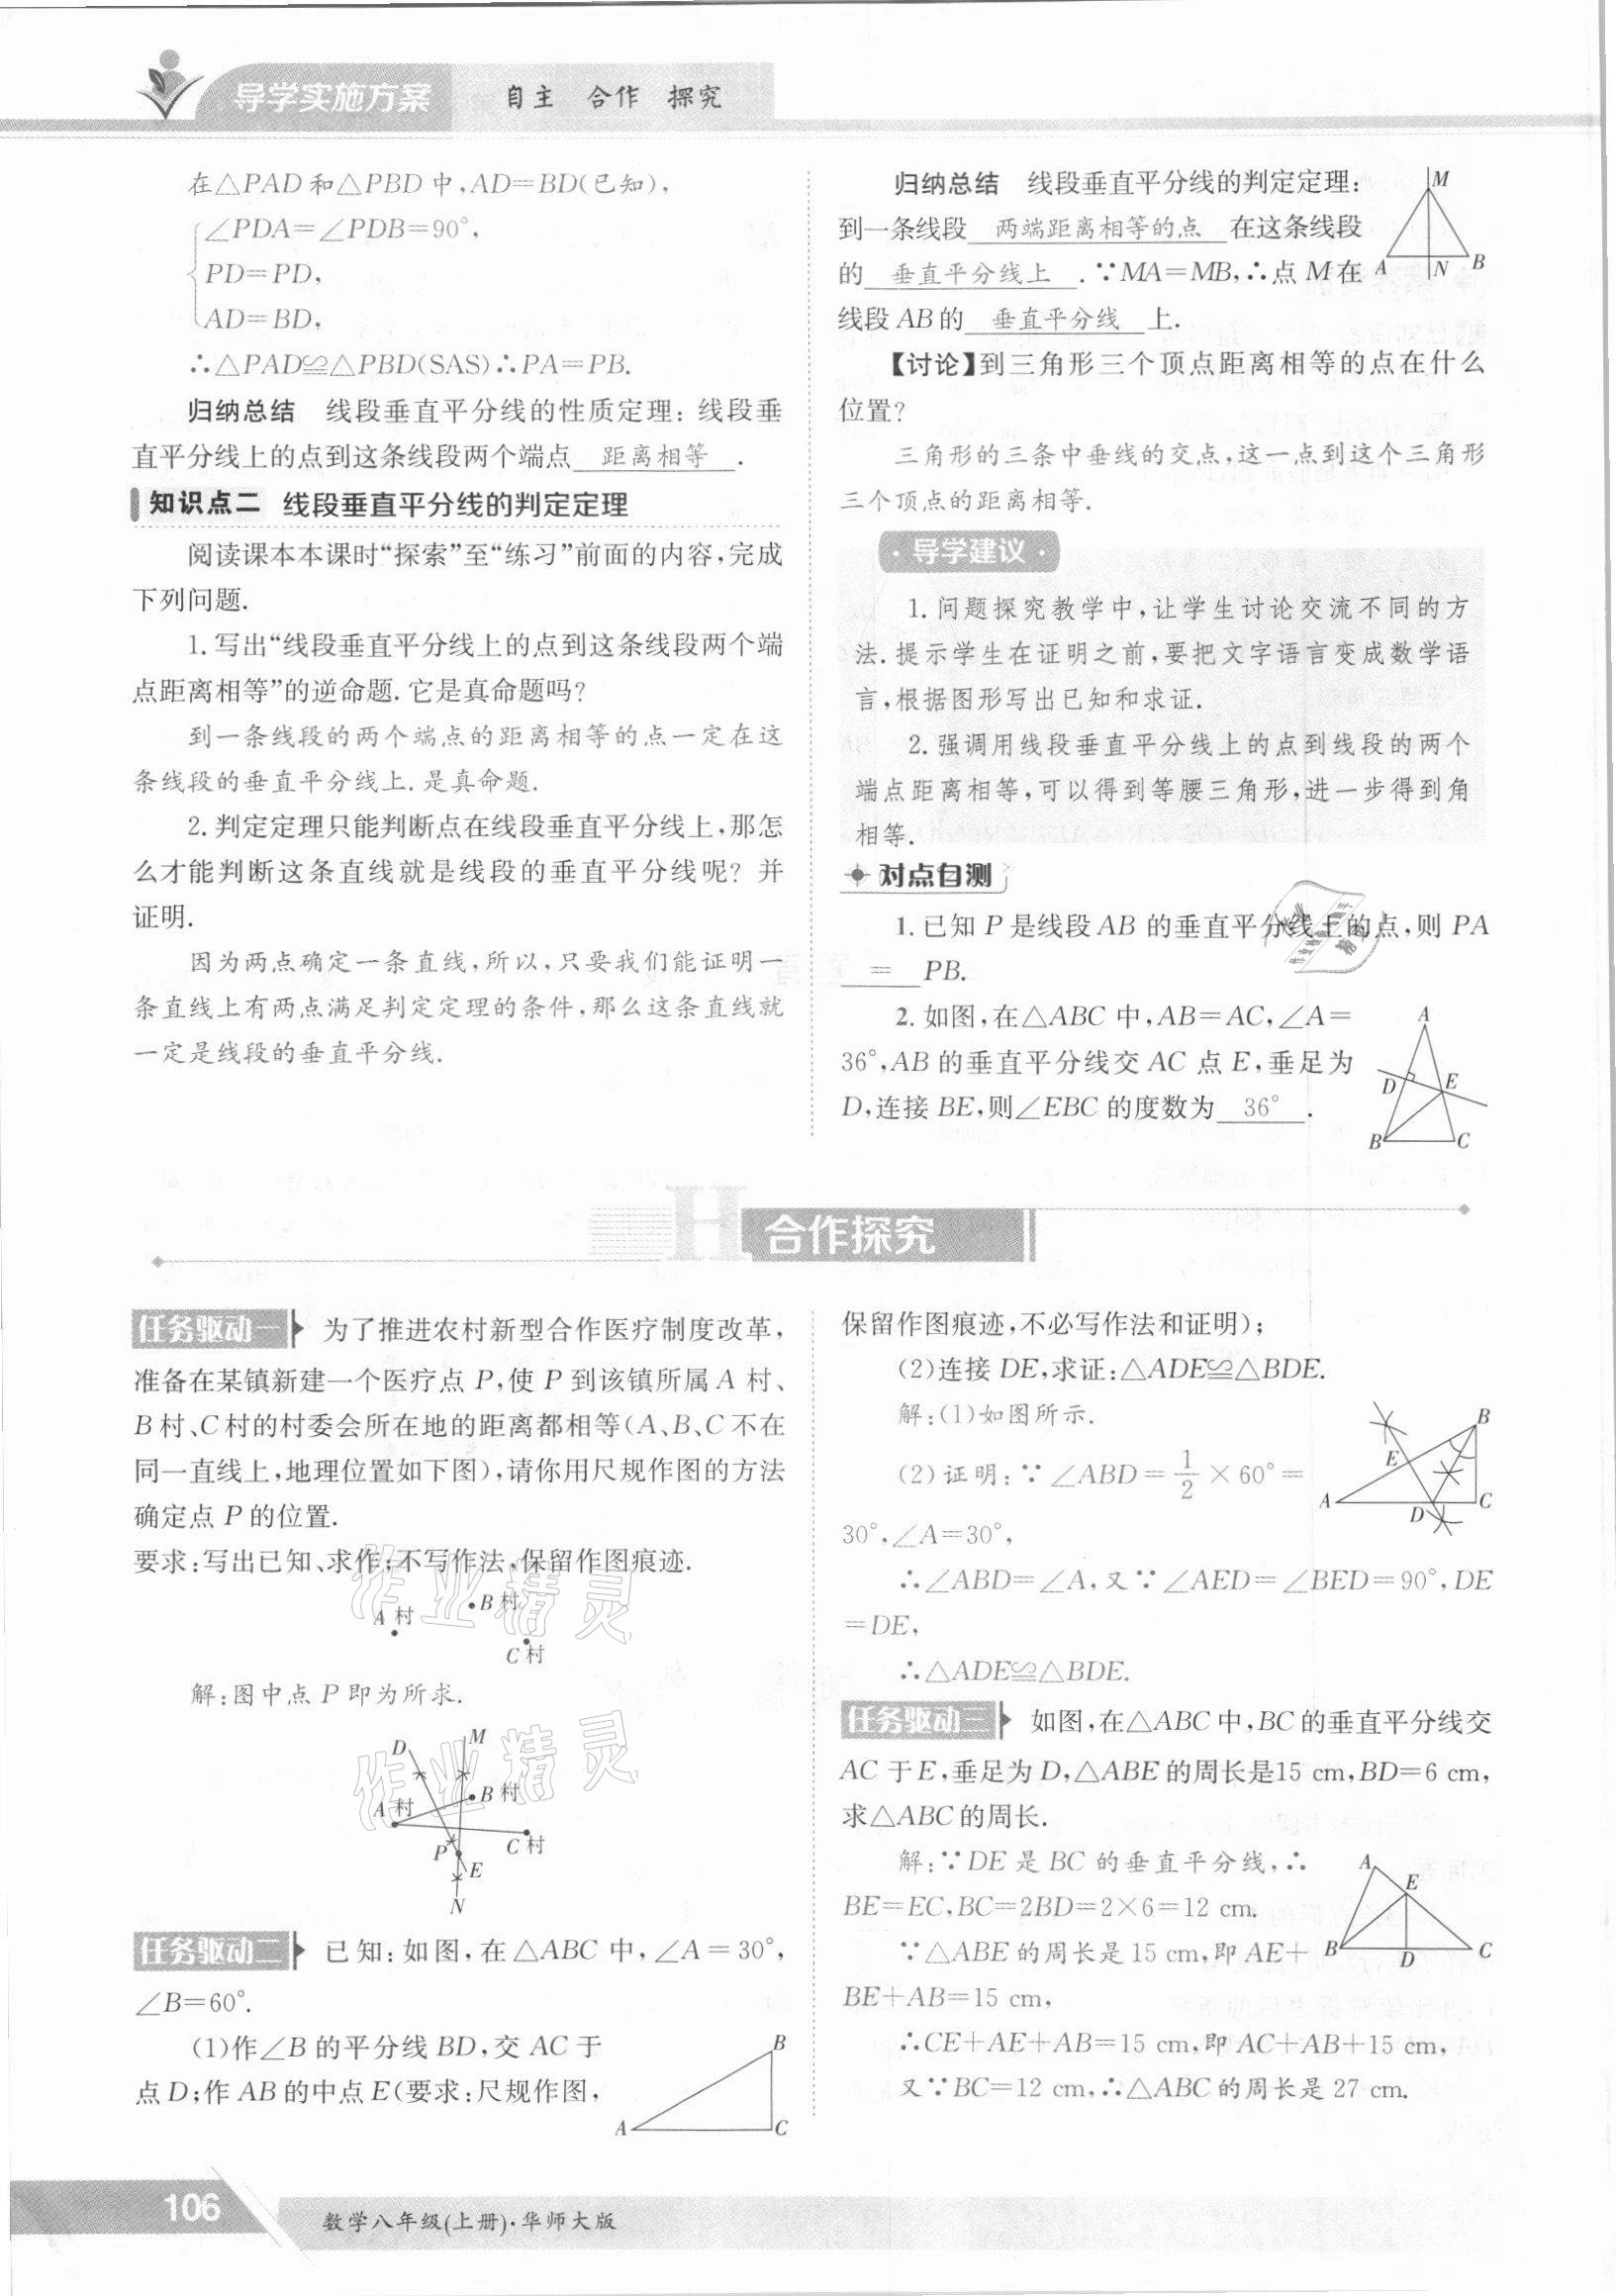 导学实施方案 自主 合作 探究
在△PAD和△PBD中,AD=BD(已知),
∠PDA=∠PDB=90°,
PD=PD,
AD=BD,
∴△PAD≌△PBD(SAS)∴PA=PB.
归纳总结 线段垂直平分线的性质定理:线段垂
直平分线上的点到这条线段两个端点 距离相等 .
知识点二 线段垂直平分线的判定定理
阅读课本本课时“探索”至“练习”前面的内容,完成
下列问题.
1.写出“线段垂直平分线上的点到这条线段两个端
点距离相等”的逆命题.它是真命题吗?
到一条线段的两个端点的距离相等的点一定在这
条线段的垂直平分线上.是真命题.
2.判定定理只能判断点在线段垂直平分线上,那怎
么才能判断这条直线就是线段的垂直平分线呢?并
证明.
因为两点确定一条直线,所以,只要我们能证明一
条直线上有两点满足判定定理的条件,那么这条直线就
一定是线段的垂直平分线.
归纳总结 线段垂直平分线的判定定理:
到一条线段 两端距离相等的点 在这条线段
的 垂直平分线上 .∵MA=MB,∴点M在
线段AB的 垂直平分线 上.
M
A N B
【讨论】到三角形三个顶点距离相等的点在什么
位置?
三角形的三条中垂线的交点,这一点到这个三角形
三个顶点的距离相等.
·导学建议·
1.问题探究教学中,让学生讨论交流不同的方
法.提示学生在证明之前,要把文字语言变成数学语
言,根据图形写出已知和求证.
2.强调用线段垂直平分线上的点到线段的两个
端点距离相等,可以得到等腰三角形,进一步得到角
相等.
对点自测
1.已知P是线段AB的垂直平分线上的点,则PA
= PB.
2.如图,在△ABC中,AB=AC,∠A=
36°,AB的垂直平分线交AC点E,垂足为
D,连接BE,则∠EBC的度数为 36° .
A
D E
B C
H 合作探究
任务驱动一 为了推进农村新型合作医疗制度改革,
准备在某镇新建一个医疗点P,使P到该镇所属A村、
B村、C村的村委会所在地的距离都相等(A、B、C不在
同一直线上,地理位置如下图),请你用尺规作图的方法
确定点P的位置.
要求:写出已知、求作;不写作法,保留作图痕迹.
A村 B村
C村
作业精灵
解:图中点P即为所求.
D M
A村 B村
P C村
E
N
作业精灵
任务驱动二 已知:如图,在△ABC中,∠A=30°,
∠B=60°.
(1)作∠B的平分线BD,交AC于
点D;作AB的中点E(要求:尺规作图,
B
A C
保留作图痕迹,不必写作法和证明);
(2)连接DE,求证:△ADE≌△BDE.
解:(1)如图所示.
(2)证明:∵∠ABD=1/2×60°=
30°,∠A=30°,
B
E
A D C
∴∠ABD=∠A,又∵∠AED=∠BED=90°,DE
=DE,
∴△ADE≌△BDE.
任务驱动三 如图,在△ABC中,BC的垂直平分线交
AC于E,垂足为D,△ABE的周长是15 cm,BD=6 cm,
求△ABC的周长.
解:∵DE是BC的垂直平分线,∴
BE=EC,BC=2BD=2×6=12 cm.
∵△ABE的周长是15 cm,即AE+
BE+AB=15 cm,
A E
B D C
∴CE+AE+AB=15 cm,即AC+AB+15 cm,
又∵BC=12 cm,∴△ABC的周长是27 cm.
106 数学八年级(上册)·华师大版